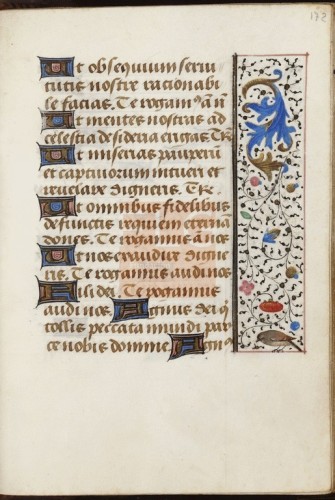 172
Ut obsequium serui
tutis nostre rationabi
le facias. Te rogam9 a n
Ut mentes nostras ad
celestia desideria erigas. Te R.
Ut miserias pauperū
et captiuorum intueri et
reuelare digneris. Te R.
Ut omnibus fidelibus
defunctis requiem eternā
dones. Te rogamus au nos
Ut nos exaudire digne
ris. Te rogamus audi nos
Fili dei Te rogamus
audi nos. Agnus dei q
tollis peccata mundi par
ce nobis domine. Agn9